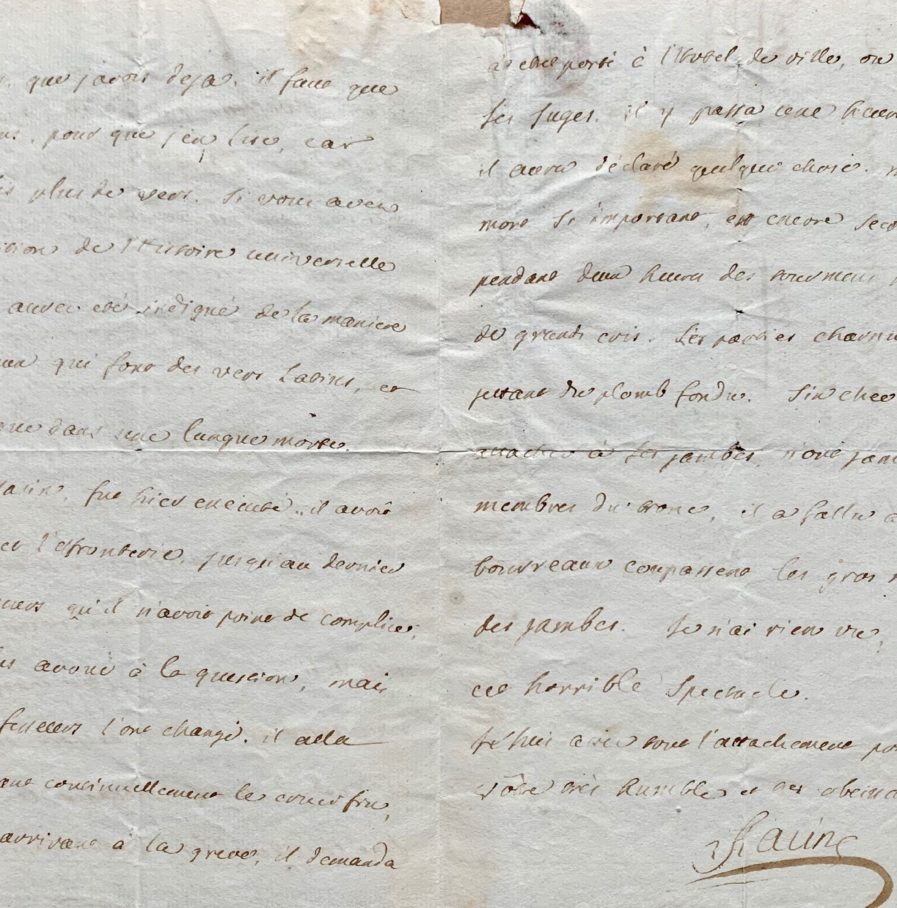 que j'avois deja. il faut que
pour que j'en lise, car
plus de vers. Si vous avez
de l'Histoire universelle
aurez eté indigné de la maniere
qui font des vers Latins, et
que dans une langue morte.
fut hier executé. il avoit
l'effronterie, jusqu'au dernier
qu'il n'avoit point de complices,
avoué à la question, mais
l'ont changé. il alla
continuellement le crucifix,
arrivant à la greve, il demanda
a etre porté à l'hotel de ville, ou
ses Juges. il y passa une heure
il aura déclaré quelque chose.
mort si important, est encore
pendant deux heures des tourmens
de grands cris. Les parties
jettant du plomb fondu. Six chev
attachés à ses jambes, n'ont jam
membres du tronc, il a fallu
bourreaux coupassent les gros
des jambes. Je n'ai rien vu,
cet horrible spectacle.
Je suis avec tout l'attachement po
vôtre très humble et tres obeiss
Racine